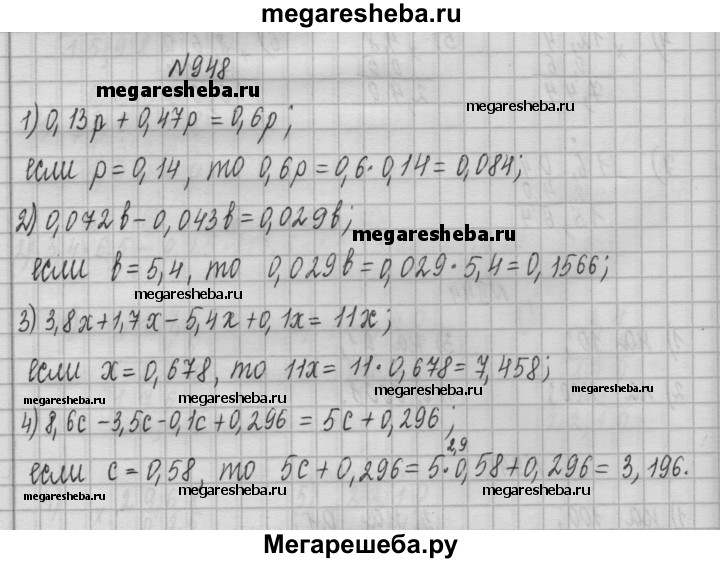 megaresheba.ru
N948
megaresheba.ru
megaresheba.ru
1) 0,13p + 0,47p = 0,6p;
если p = 0,14, то 0,6p = 0,6·0,14 = 0,084;
2) 0,072в - 0,043в = 0,029в;
megaresheba.ru
если в = 5,4, то 0,029в = 0,029·5,4 = 0,1566;
megaresheba.ru
megaresheba.ru
3) 3,8x + 1,7x - 5,4x + 0,1x = 11x;
если x = 0,678, то 11x = 11·0,678 = 7,458;
megaresheba.ru
megaresheba.ru
megaresheba.ru
4) 8,6c - 3,5c - 0,1c + 0,296 = 5c + 0,296;
2,9
если c = 0,58, то 5c + 0,296 = 5·0,58 + 0,296 = 3,196.
megaresheba.ru
megaresheba.ru
megaresheba.ru
megaresheba.ru
Мегарешеба.ру